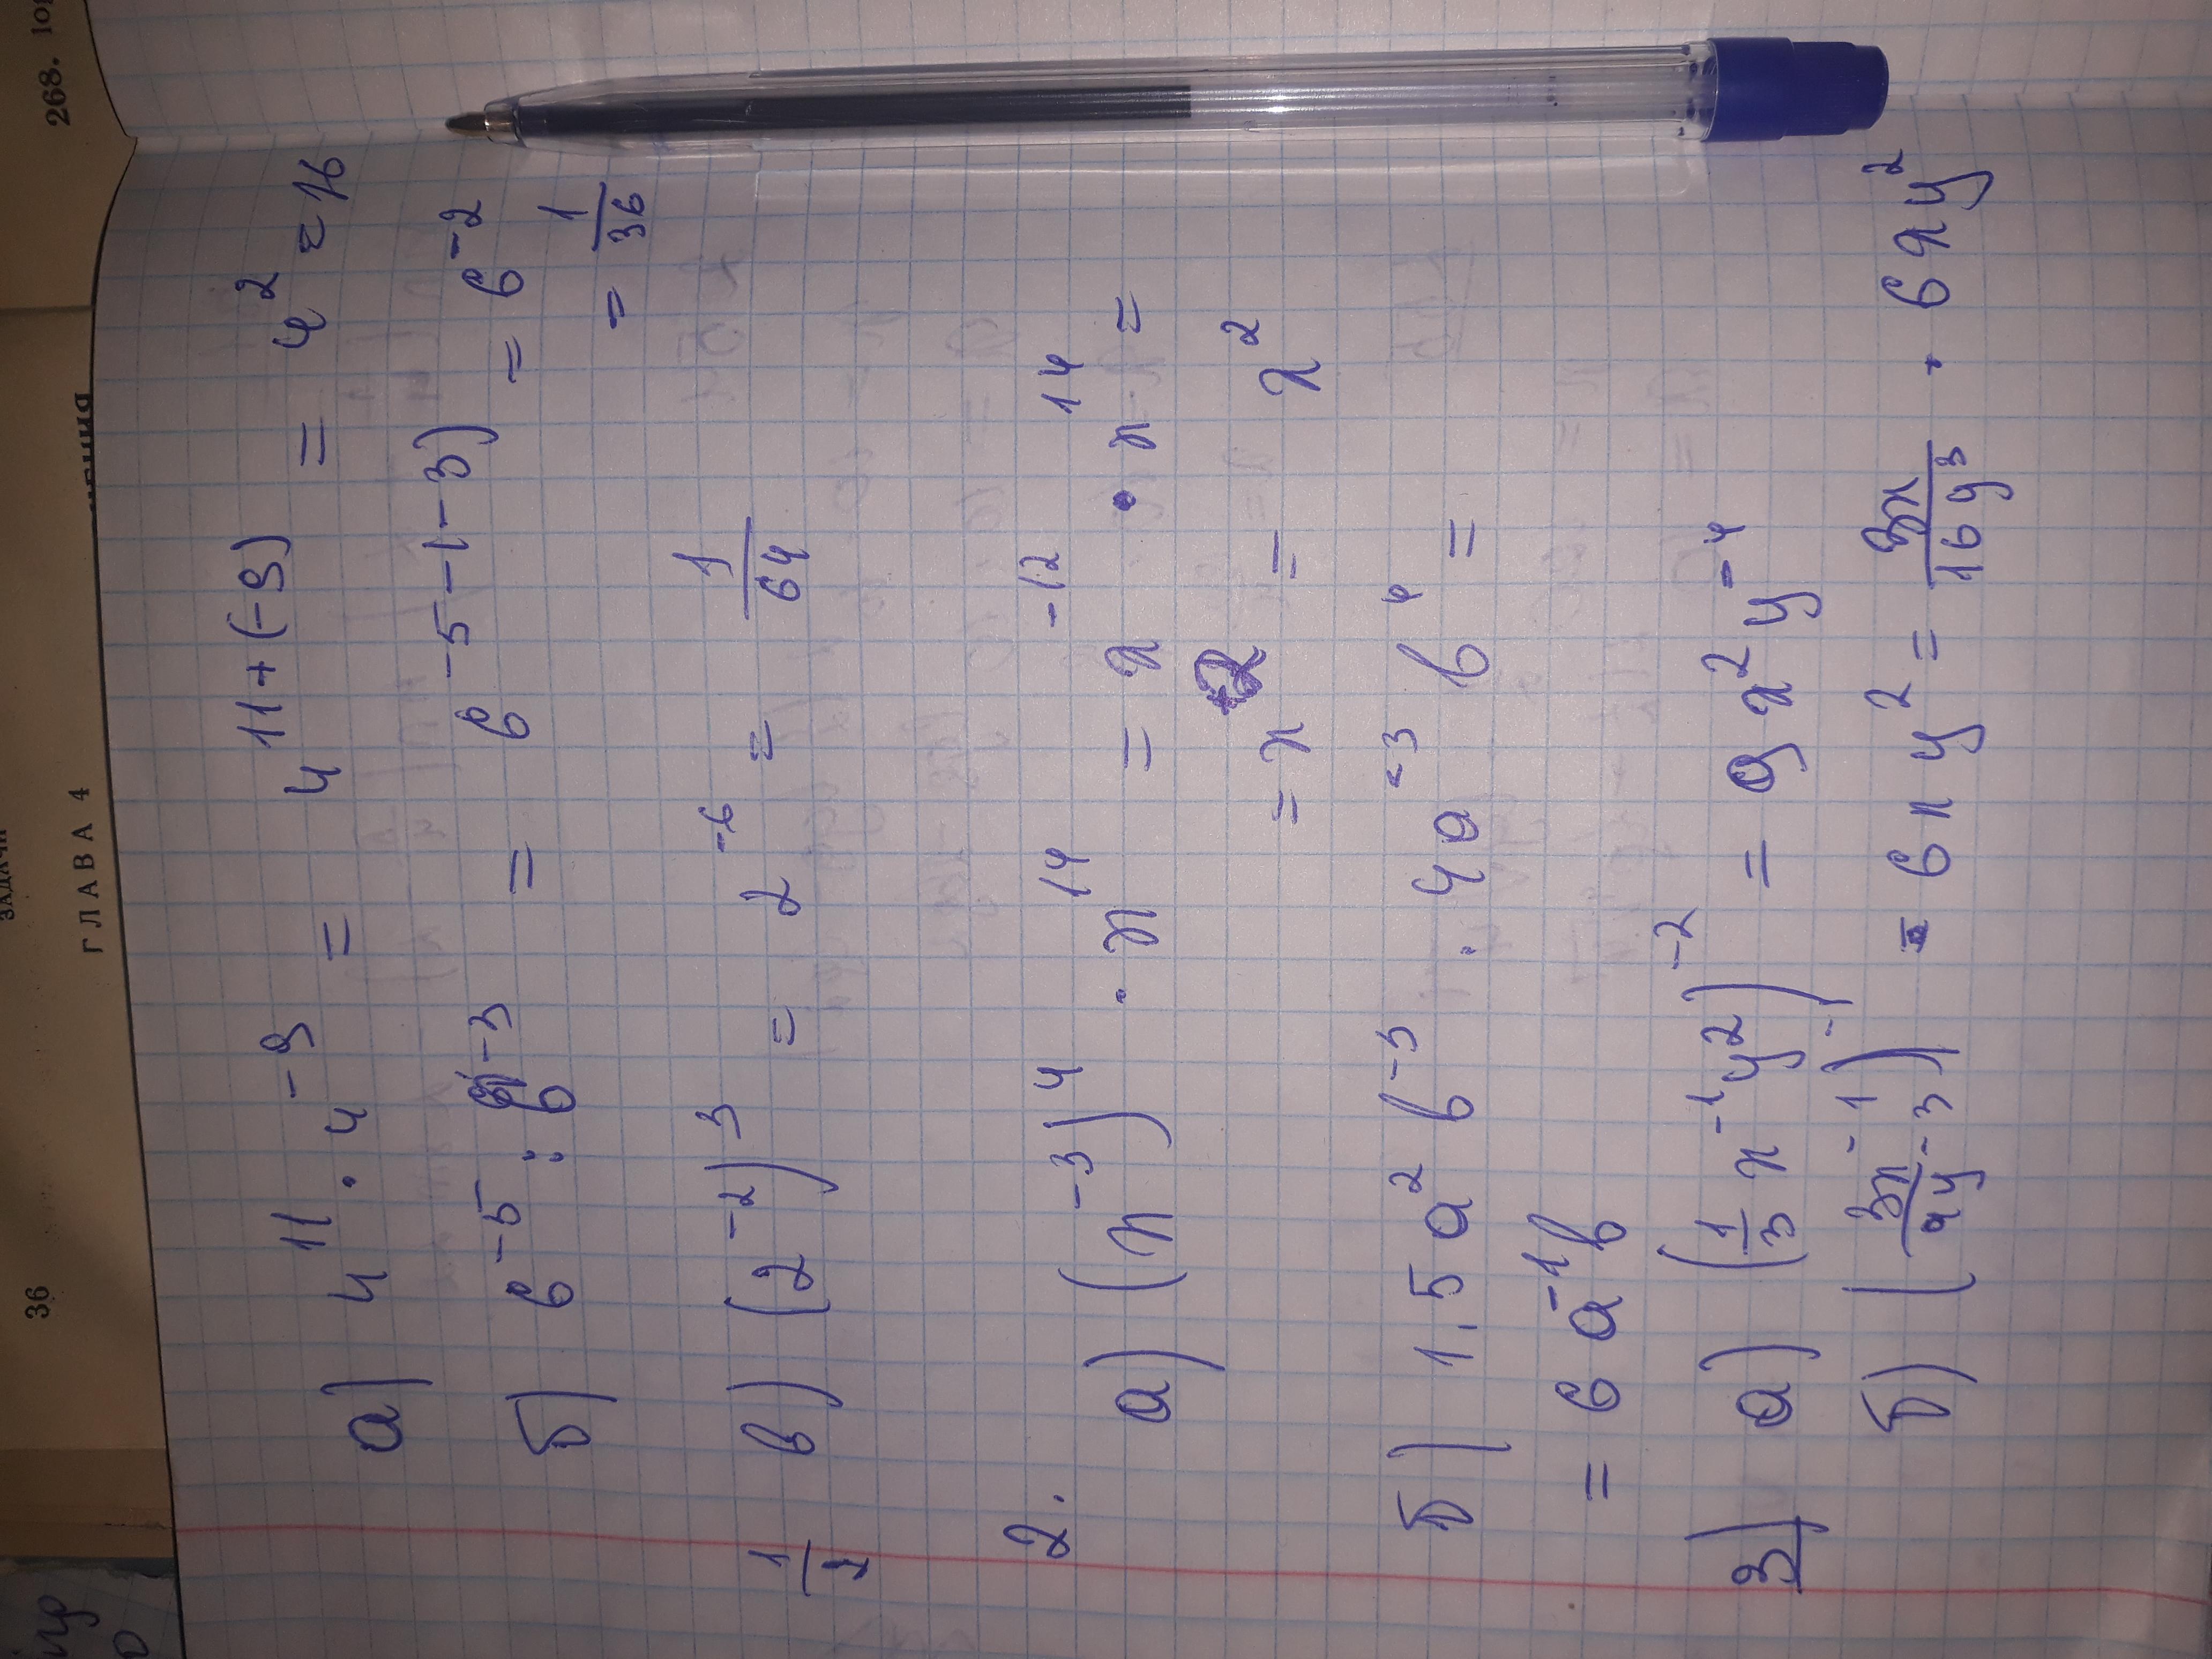 268.
ЗАДАЧИ
ГЛАВА 4
36
а) 4¹¹ · 4⁻⁹ = 4¹¹⁺⁽⁻⁹⁾ = 4² = 16
б) 6⁻⁵ : 6⁻³ = 6⁻⁵⁻⁽⁻³⁾ = 6⁻²
= 1/36
в) (2⁻²)³ = 2⁻⁶ = 1/64
2.
а) (x⁻³)⁴ · x¹⁴ = x⁻¹² · x¹⁴ =
= x² = x²
б) 1,5a²b⁻³ · 4a⁻³b⁴ =
= 6a⁻¹b
3) а) (1/3 x⁻¹y²)⁻² = 9x²y⁻⁴
б) (3x⁻¹/4y⁻³)⁻¹ · 6xy² = 3x/16y³ · 6xy²